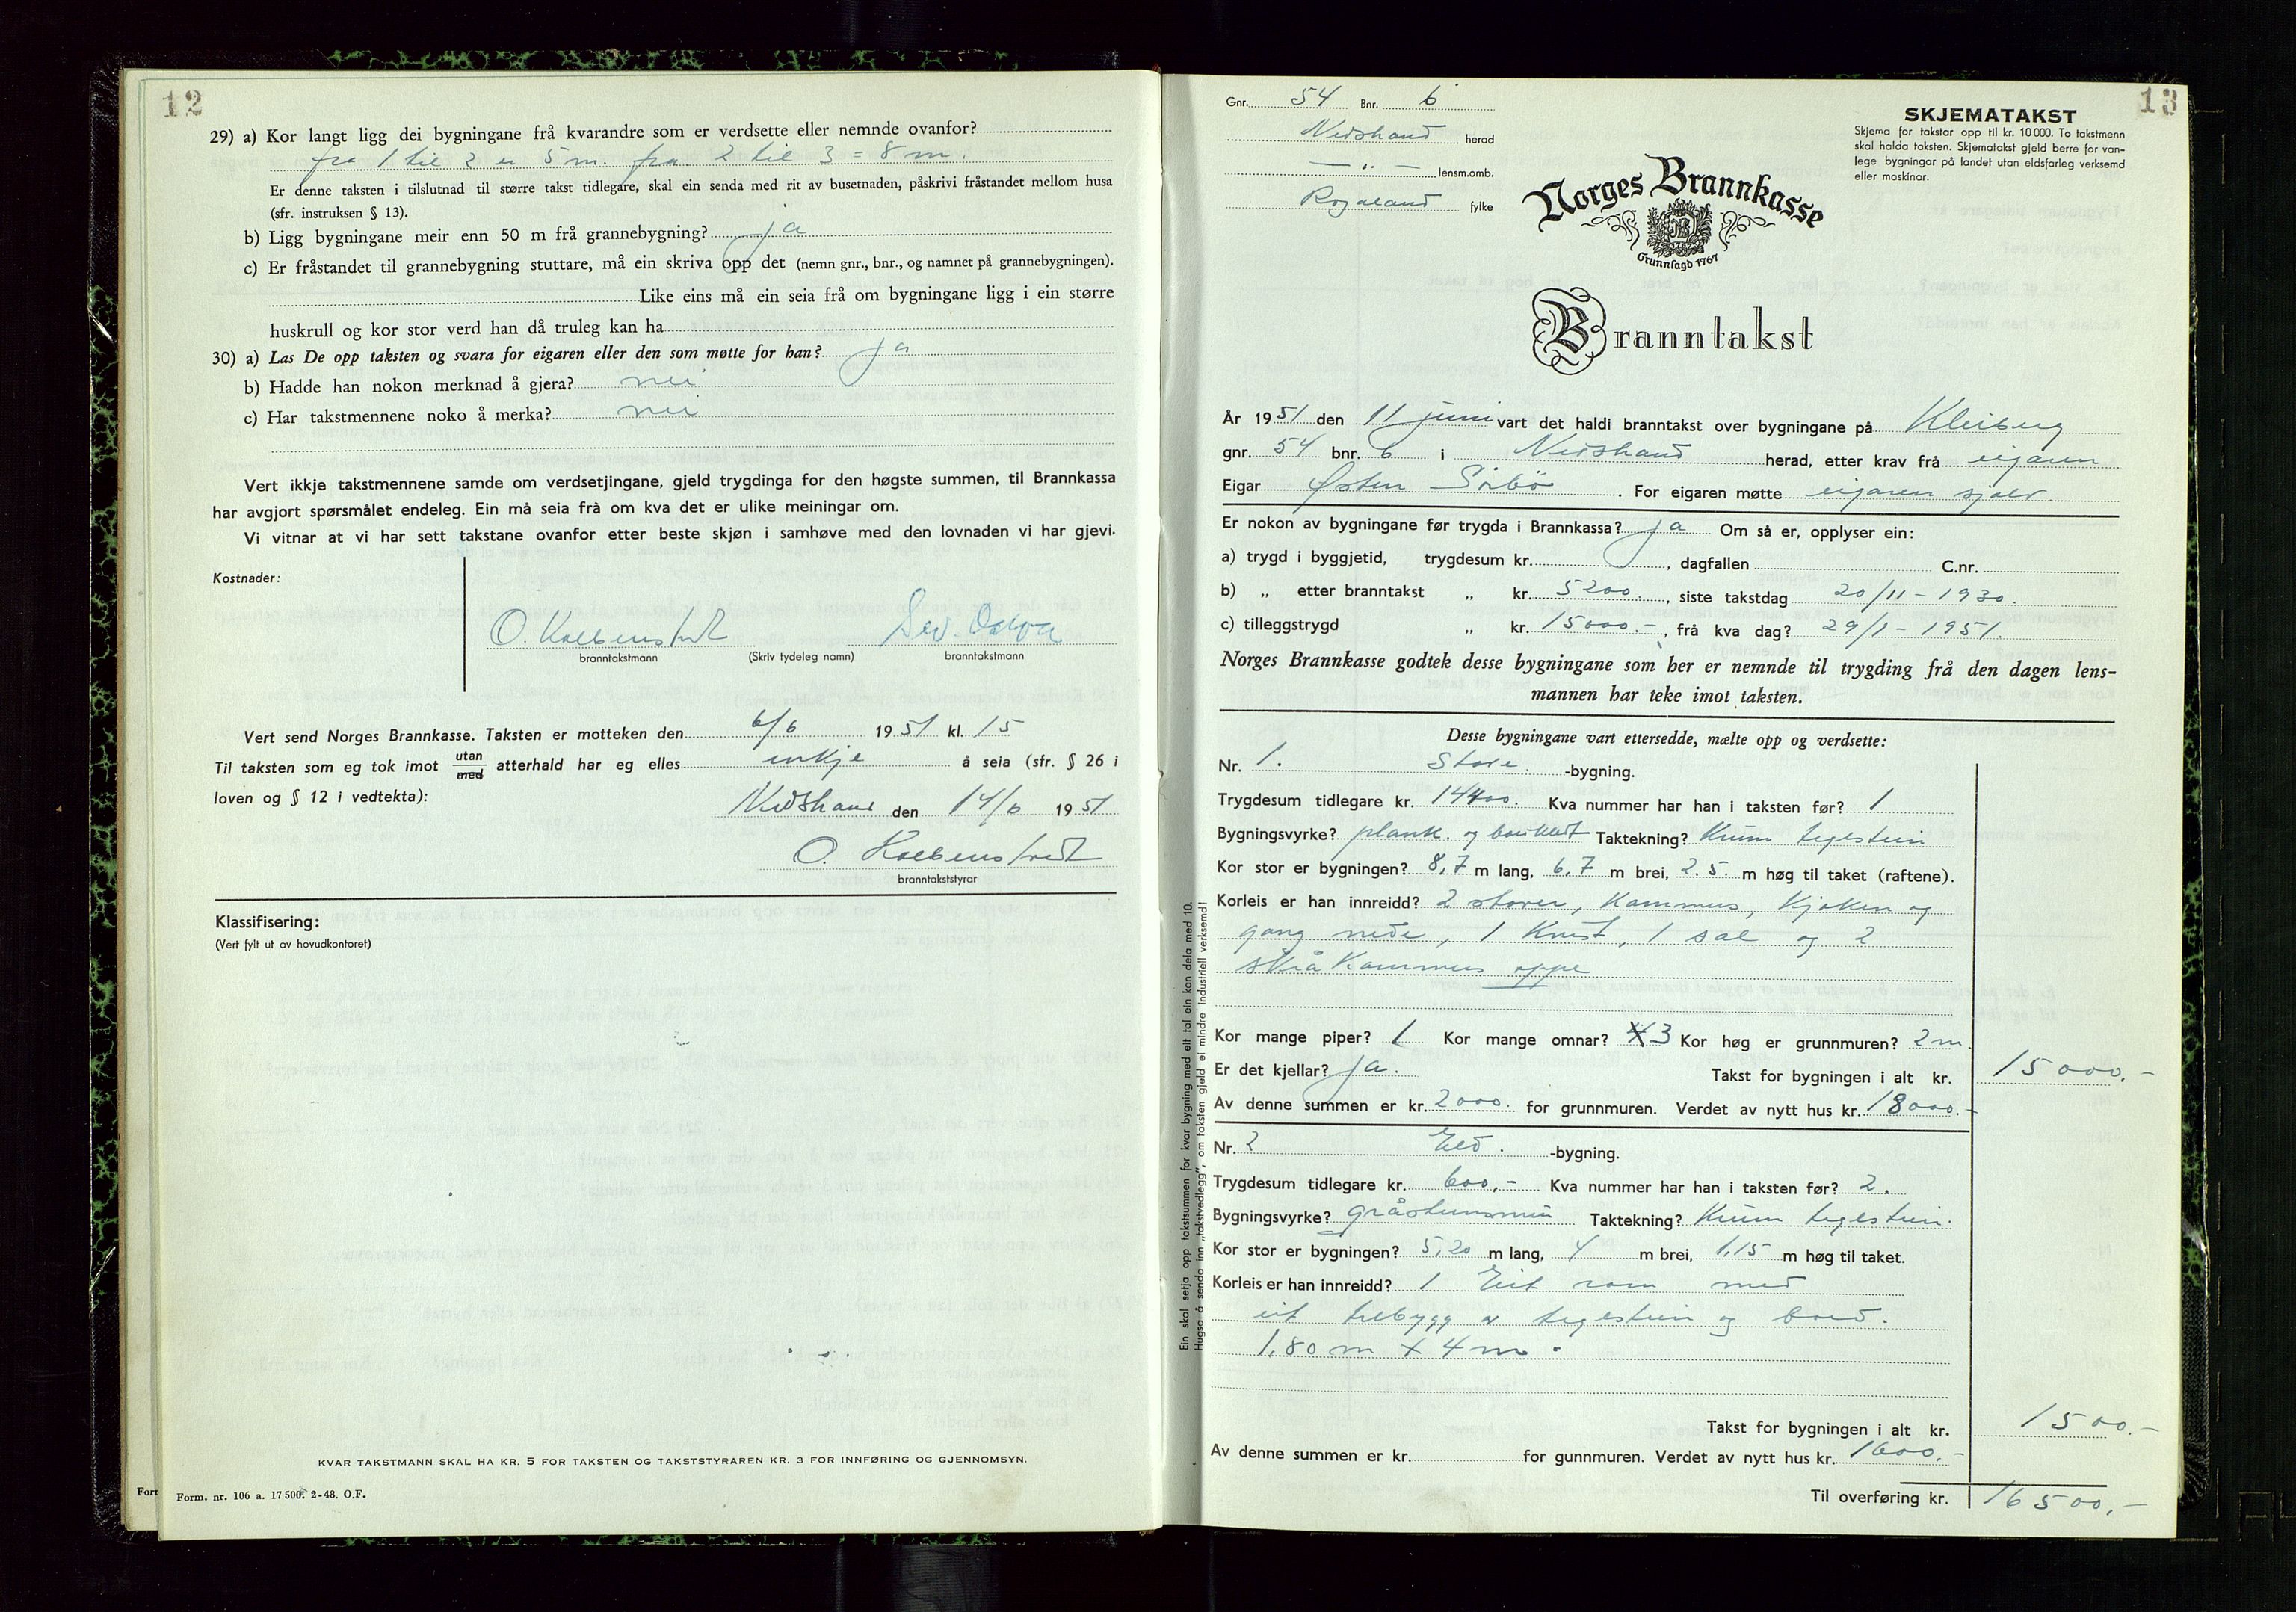 12
29) a) Kor langt ligg dei bygningane frå kvarandre som er verdsette eller nemnde ovanfor?
fra 1 til 2 er 5 m. fra 2 til 3 = 8 m.
Er denne taksten i tilslutnad til større takst tidlegare, skal ein senda med rit av busetnaden, påskrivi fråstandet mellom husa
(sfr. instruksen § 13).
b) Ligg bygningane meir enn 50 m frå grannebygning? ja
c) Er fråstandet til grannebygning stuttare, må ein skriva opp det (nemn gnr., bnr., og namnet på grannebygningen).
Like eins må ein seia frå om bygningane ligg i ein større
huskrull og kor stor verd han då truleg kan ha
30) a) Las De opp taksten og svara for eigaren eller den som møtte for han? ja
b) Hadde han nokon merknad å gjera? nei
c) Har takstmennene noko å merka? nei
Vert ikkje takstmennene samde om verdsetjingane, gjeld trygdinga for den høgste summen, til Brannkassa
har avgjort spørsmålet endeleg. Ein må seia frå om kva det er ulike meiningar om.
Vi vitnar at vi har sett takstane ovanfor etter beste skjøn i samhøve med den lovnaden vi har gjevi.
Kostnader:
O. Kolbenstvedt
branntakstmann (Skriv tydeleg namn) branntakstmann
Vert send Norges Brannkasse. Taksten er motteken den 6/6 1951 kl. 15
Til taksten som eg tok imot utan/med atterhald har eg elles inkje å seia (sfr. § 26 i
loven og § 12 i vedtekta):
Nedstrand den 14/6 1951
O. Kolbenstvedt
branntakststyrar
Klassifisering:
(Vert fylt ut av hovudkontoret)
KVAR TAKSTMANN SKAL HA KR. 5 FOR TAKSTEN OG TAKSTSTYRAREN KR. 3 FOR INNFØRING OG GJENNOMSYN.
Form. nr. 106 a. 17 500. 2-48. O.F.
13
Gnr. 54 Bnr. 6
Nedstrand herad
— „ — lensm.omb.
Rogaland fylke
SKJEMATAKST
Skjema for takstar opp til kr. 10 000. To takstmenn
skal halda taksten. Skjematakst gjeld berre for van-
lege bygningar på landet utan eldsfarleg verksemd
eller maskinar.
Norges Brannkasse
Grunnlagd 1767
Branntakst
År 1951 den 11 juni vart det haldi branntakst over bygningane på Kleiberg
gnr. 54 bnr. 6 i Nedstrand herad, etter krav frå eigaren
Eigar Østen Sørbø. For eigaren møtte eigaren sjølv.
Er nokon av bygningane før trygda i Brannkassa? ja Om så er, opplyser ein:
a) trygd i byggjetid, trygdesum kr. , dagfallen C.nr.
b) „ etter branntakst „ kr. 5200. , siste takstdag 20/11 - 1930.
c) tilleggstrygd „ kr. 15000.- , frå kva dag? 29/1 - 1951.
Norges Brannkasse godtek desse bygningane som her er nemnde til trygding frå den dagen lens-
mannen har teke imot taksten.
Desse bygningane vart ettersedde, mælte opp og verdsette:
Nr. 1. Stove. -bygning.
Trygdesum tidlegare kr. 14400. Kva nummer har han i taksten før? 1
Bygningsvyrke? plank. og bordkledt Taktekning? Krum teglstein
Kor stor er bygningen? 8,7 m lang, 6,7 m brei, 2.5. m høg til taket (raftene).
Korleis er han innreidd? 2 stover, Kammers, Kjøken og
gang nede, 1 Kvist, 1 sal og 2
skråkammers oppe
Kor mange piper? 1 Kor mange omnar? 3 Kor høg er grunnmuren? 2 m.
Er det kjellar? ja. Takst for bygningen i alt kr. 15000.-
Av denne summen er kr. 2000. for grunnmuren. Verdet av nytt hus kr. 18000.-
Nr. 2 Eld. -bygning.
Trygdesum tidlegare kr. 600,- Kva nummer har han i taksten før? 2.
Bygningsvyrke? gråsteinsmur Taktekning? Krum teglstein.
Kor stor er bygningen? 5,20 m lang, 4 m brei, 1,15 m høg til taket.
Korleis er han innreidd? 1 Eit rom med
eit tilbygg av teglstein og bord.
1,80 m x 4 m.
Takst for bygningen i alt kr. 1500.-
Av denne summen er kr. for gunnmuren. Verdet av nytt hus kr. 1600.-
Til overføring kr. 16500,-
Ein skal setja opp takstsummen for kvar bygning med eit tal ein kan dela med 10.
Hugsa å senda inn „takstvedlegg", om taksten gjeld ei mindre industriell verksemd!